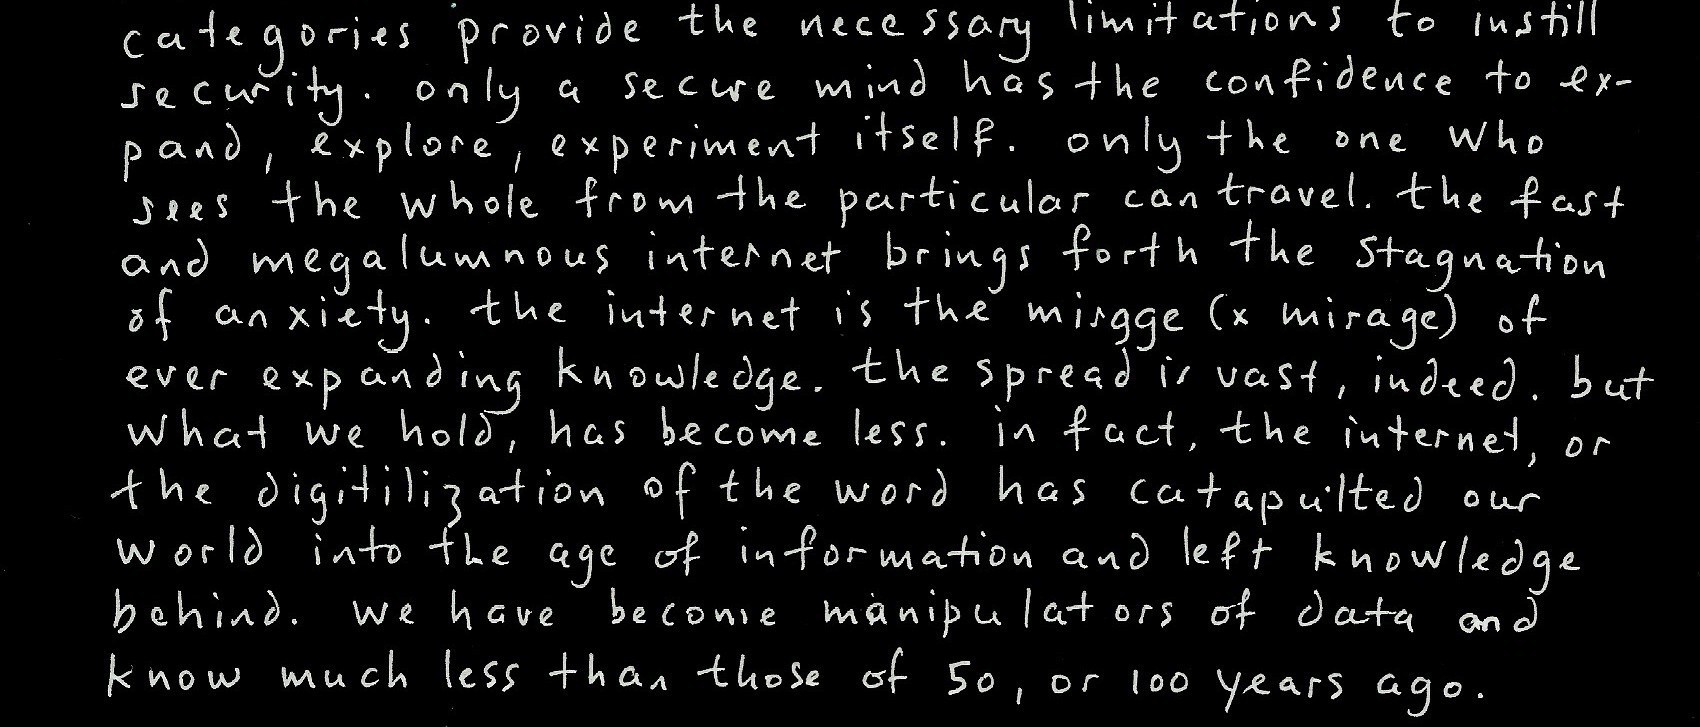 categories provide the necessary limitations to instill
security. only a secure mind has the confidence to ex-
pand, explore, experiment itself. only the one who
sees the whole from the particular can travel. the fast
and megalumnous internet brings forth the stagnation
of anxiety. the internet is the mirgge (x mirage) of
ever expanding knowledge. the spread is vast, indeed. but
what we hold, has become less. in fact, the internet, or
the digitilization of the word has catapulted our
world into the age of information and left knowledge
behind. we have become manipulators of data and
know much less than those of 50, or 100 years ago.